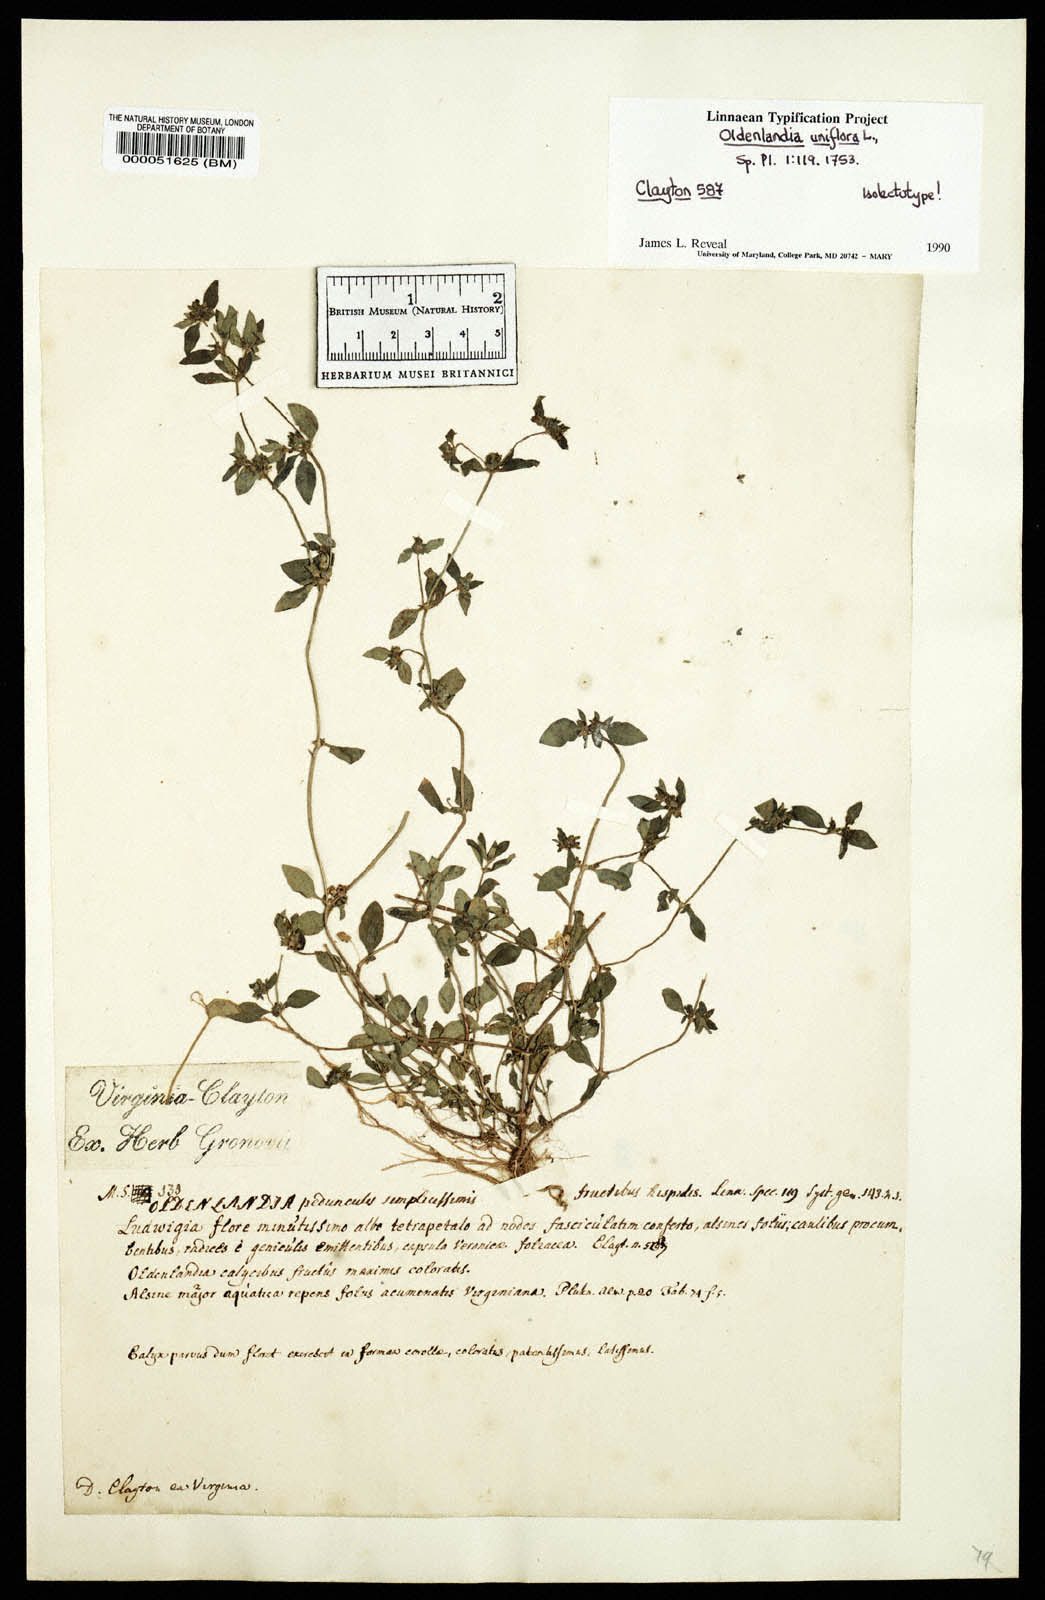 THE NATURAL HISTORY MUSEUM, LONDON
DEPARTMENT OF BOTANY
000051625 (BM)
Linnaean Typification Project
Oldenlandia uniflora L.,
Sp. Pl. 1:119. 1753.
Clayton 587
Isolectotype!
James L. Reveal
1990
University of Maryland, College Park, MD 20742 – MARY
1 2
BRITISH MUSEUM (NATURAL HISTORY)
1 2 3 4 5
HERBARIUM MUSEI BRITANNICI
Virginia-Clayton
Ex. Herb Gronovii
M.S. 538
OLDENLANDIA pedunculis simplicissimis fructibus hispidis. Linn. Spec. 119 Syst. gen. 143.n.3.
Ludwigia flore minutissimo albo tetrapetalo ad nodos fasciculatim conferto, alsines foliis, caulibus procum,
bentibus, radices è geniculis emittentibus, capsula Veronicæ foliacea. Clayt. n.
Oldenlandia calycibus fructûs maximis coloratis.
Alsine major aquatica repens foliis acuminatis Virginiana. Pluk. alm. p.20 Tab. 74 f.5.
Calyx parvus dum floret excrescit in formam corollæ, coloratus, patentissimus, latissimus.
D. Clayton ex Virginia.
79